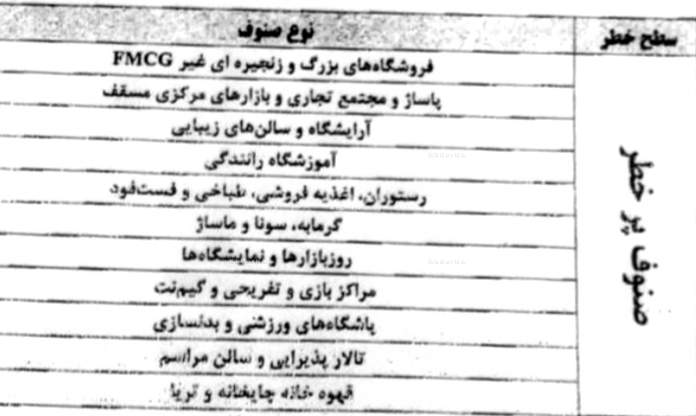 سطح خطر
نوع صنوف
صنوف پر خطر
فروشگاه‌های بزرگ و زنجیره ای غیر FMCG
پاساژ و مجتمع تجاری و بازارهای مرکزی مسقف
آرایشگاه و سالن‌های زیبایی
آموزشگاه رانندگی
رستوران، اغذیه فروشی، طباخی و فست‌فود
گرمابه، سونا و ماساژ
روزبازارها و نمایشگاه‌ها
مراکز بازی و تفریحی و گیم‌نت
باشگاه‌های ورزشی و بدنسازی
تالار پذیرایی و سالن مراسم
قهوه خانه چایخانه و تریا